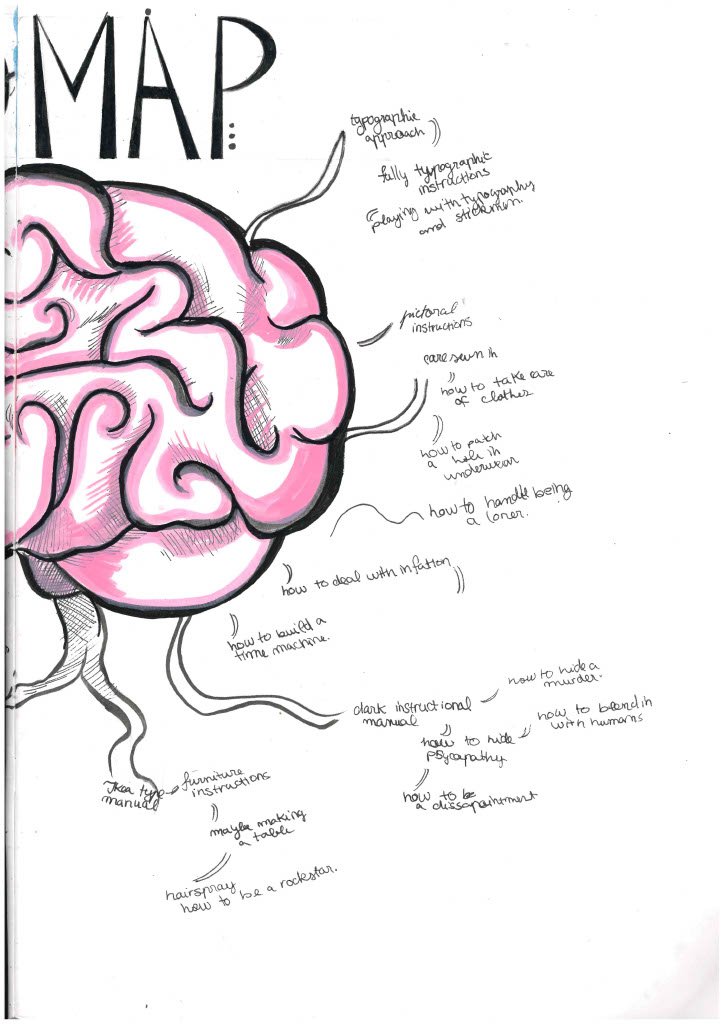 MAP
typographic
approach
fully typographic
instructions
playing with typography
and stickmen.
pictoral
instructions
care sewn in
how to take care
of clothes
how to patch
a hole in
underwear
how to handle being
a loner.
how to deal with infation
how to build a
time machine.
dark instructional
manual
how to hide a
murder.
how to blend in
with humans
how to hide
psycapathy
how to be
a dissapointment
Ikea type
manual
furniture
instructions
maybe making
a table
hairspray
how to be a rockstar.